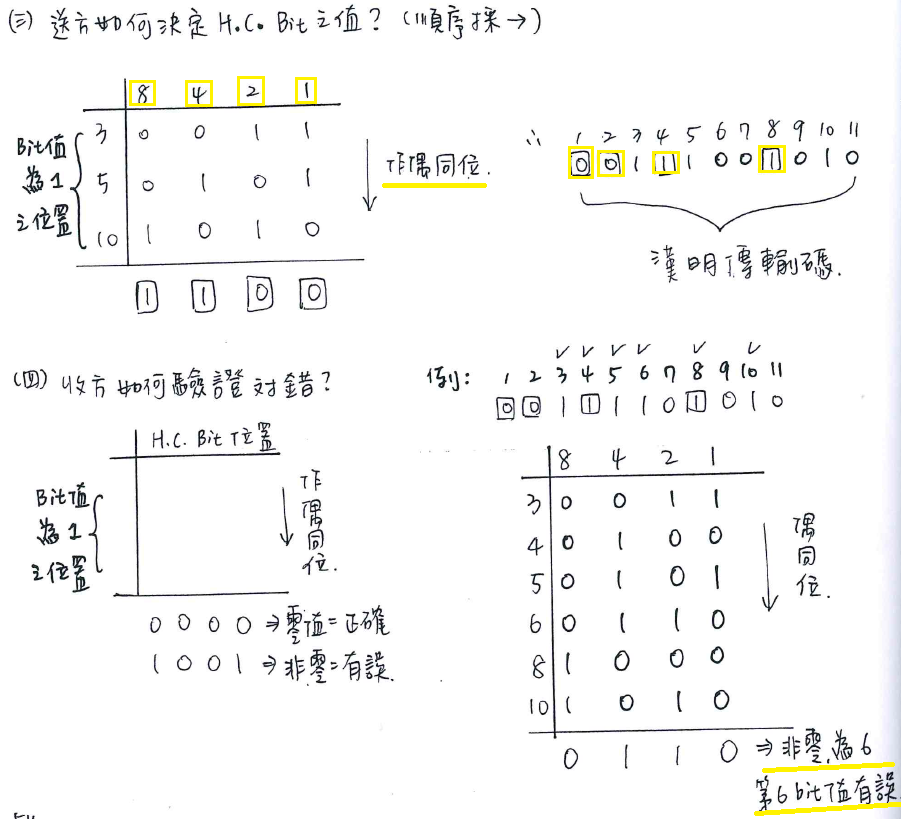 (三) 送方如何決定 H.C. Bit 之值? (順序採→)
8 4 2 1
Bit值為1之位置
3 0 0 1 1
5 0 1 0 1
10 1 0 1 0
1 1 0 0
作偶同位.
∴ 1 2 3 4 5 6 7 8 9 10 11
0 0 1 1 1 0 0 1 0 1 0
漢明傳輸碼.
(四) 收方如何驗證對錯?
H.C. Bit 位置
Bit值為1之位置
作偶同位.
0 0 0 0 ⇒ 零值=正確
1 0 0 1 ⇒ 非零=有誤.
✓ ✓ ✓ ✓ ✓ ✓
例: 1 2 3 4 5 6 7 8 9 10 11
0 0 1 1 1 1 0 1 0 1 0
8 4 2 1
3 0 0 1 1
4 0 1 0 0
5 0 1 0 1
6 0 1 1 0
8 1 0 0 0
10 1 0 1 0
偶同位.
0 1 1 0 ⇒ 非零,為6
第6 bit 值有誤.